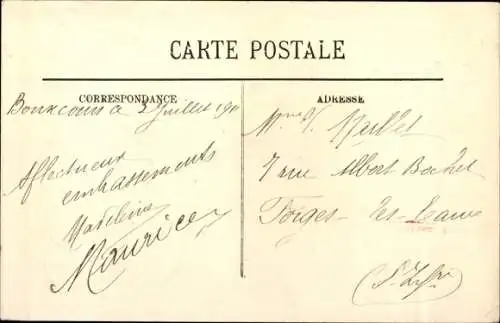 CARTE POSTALE
CORRESPONDANCE
ADRESSE
Juillet
Affectueux
embrassements
Madeleine
Maurice
Mme
7 rue Albert Bochet
Forges-les-Eaux
(S. Infre)